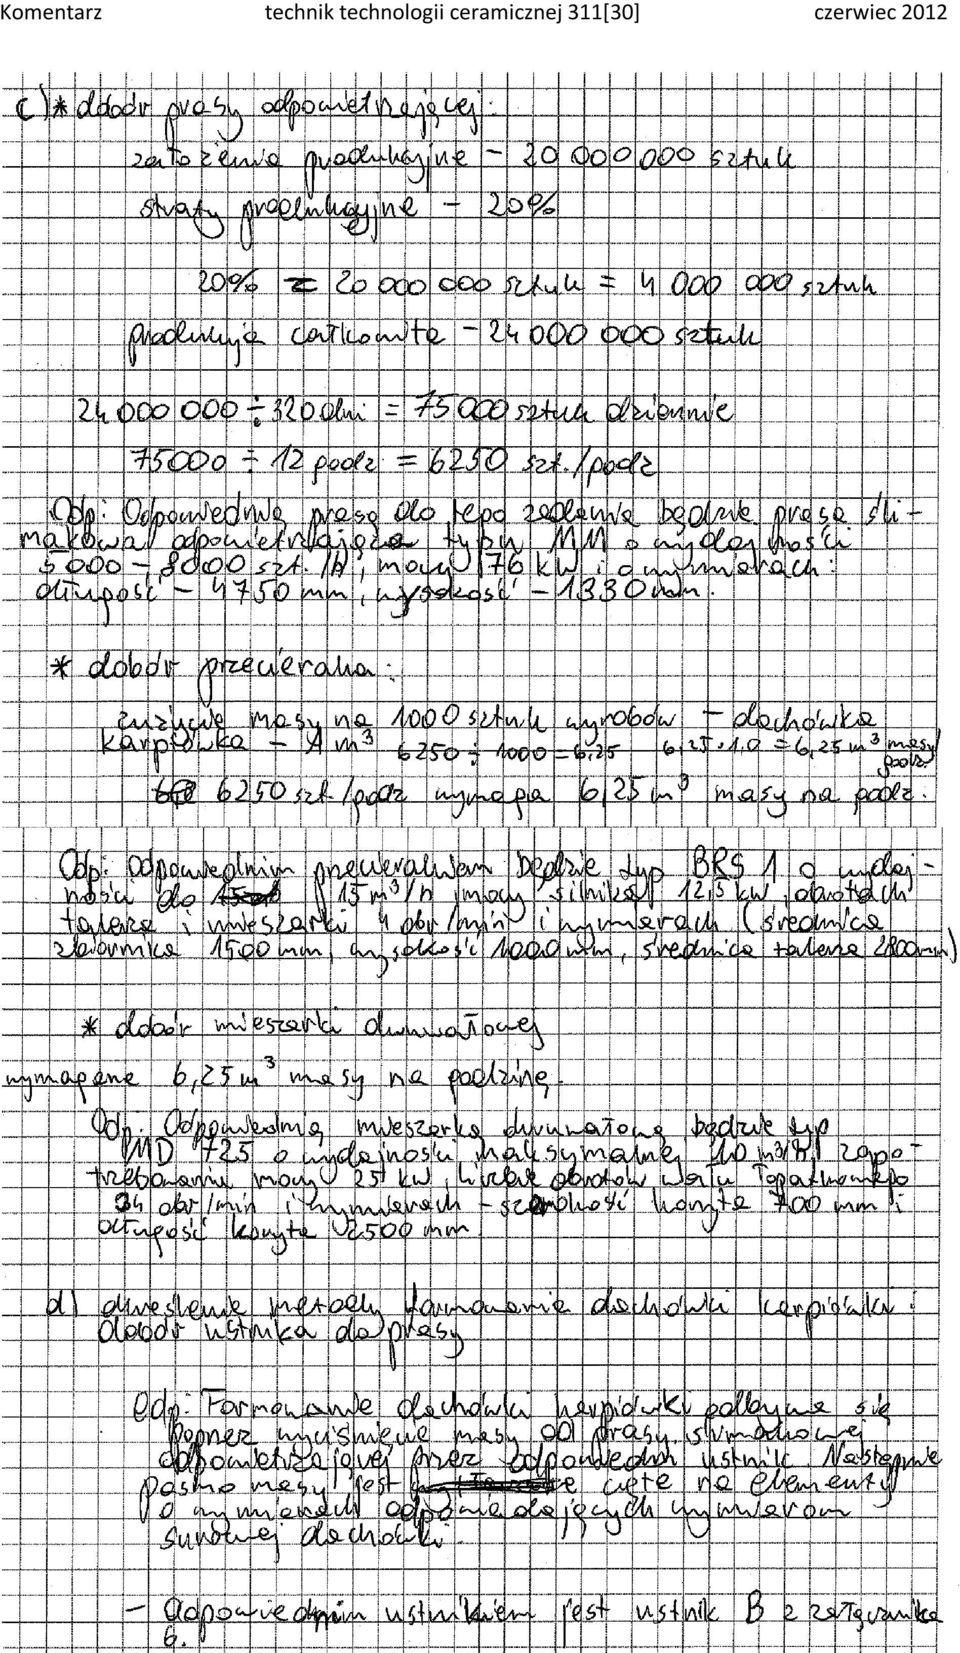 Komentarz technik technologii ceramicznej 311[30] czerwiec 2012
c) * dobór prasy odpowietrzającej:
założenia produkcyjne - 20 000 000 sztuk
straty produkcyjne - 20%
20% z 20 000 000 sztuk = 4 000 000 sztuk
produkcja całkowita - 24 000 000 sztuk
24 000 000 ÷ 320 dni = 75 000 sztuk dziennie
75000 ÷ 12 godz = 6250 szt./godz
Odp: Odpowiednią prasą do tego zadania będzie prasa śli-
makowa odpowietrzająca typu MM o wydajności
5 000 - 8000 szt./h, mocy 176 kW i o wymiarach:
długość - 4750 mm, wysokość - 1330 mm.
* dobór przecieraka:
zużycie masy na 1000 sztuk wyrobów - dachówka
karpiówka - 1 m³ 6250 ÷ 1000 = 6,25 6,25 · 1,0 = 6,25 m³ masy/
godz.
6250 szt./godz wymaga 6,25 m³ masy na godz.
Odp: Odpowiednim przecierakiem będzie typ BRS 1 o wydaj-
ności do 15 m³/h, mocy silnika 12,5 kW, obrotach
talerza i mieszarki 4 obr/min i wymiarach (średnica
zbiornika 1500 mm, wysokość 1000 mm, średnica talerza 2800mm)
* dobór mieszarki dwuwałowej
wymagane 6,25 m³ masy na godzinę.
Odp: Odpowiednią mieszarką dwuwałową będzie typ
MD 725 o wydajności maksymalnej m³/h, zapo-
trzebowaniu mocy 25 kW, liczbie obrotów wału łopatkowego
34 obr/min i wymiarach - szerokość koryta 700 mm i
długość koryta 2500 mm.
d) określenie metody formowania dachówki karpiówki i
dobór ustnika do prasy
Odp: Formowanie dachówki karpiówki odbywa się
poprzez wyciśnięcie masy od prasy ślimakowej
odpowietrzającej przez odpowiedni ustnik. Następnie
pasmo masy jest cięte na elementy
o wymiarach odpowiadających wymiarom
surowej dachówki.
- Odpowiednim ustnikiem jest ustnik B z załącznika
6.